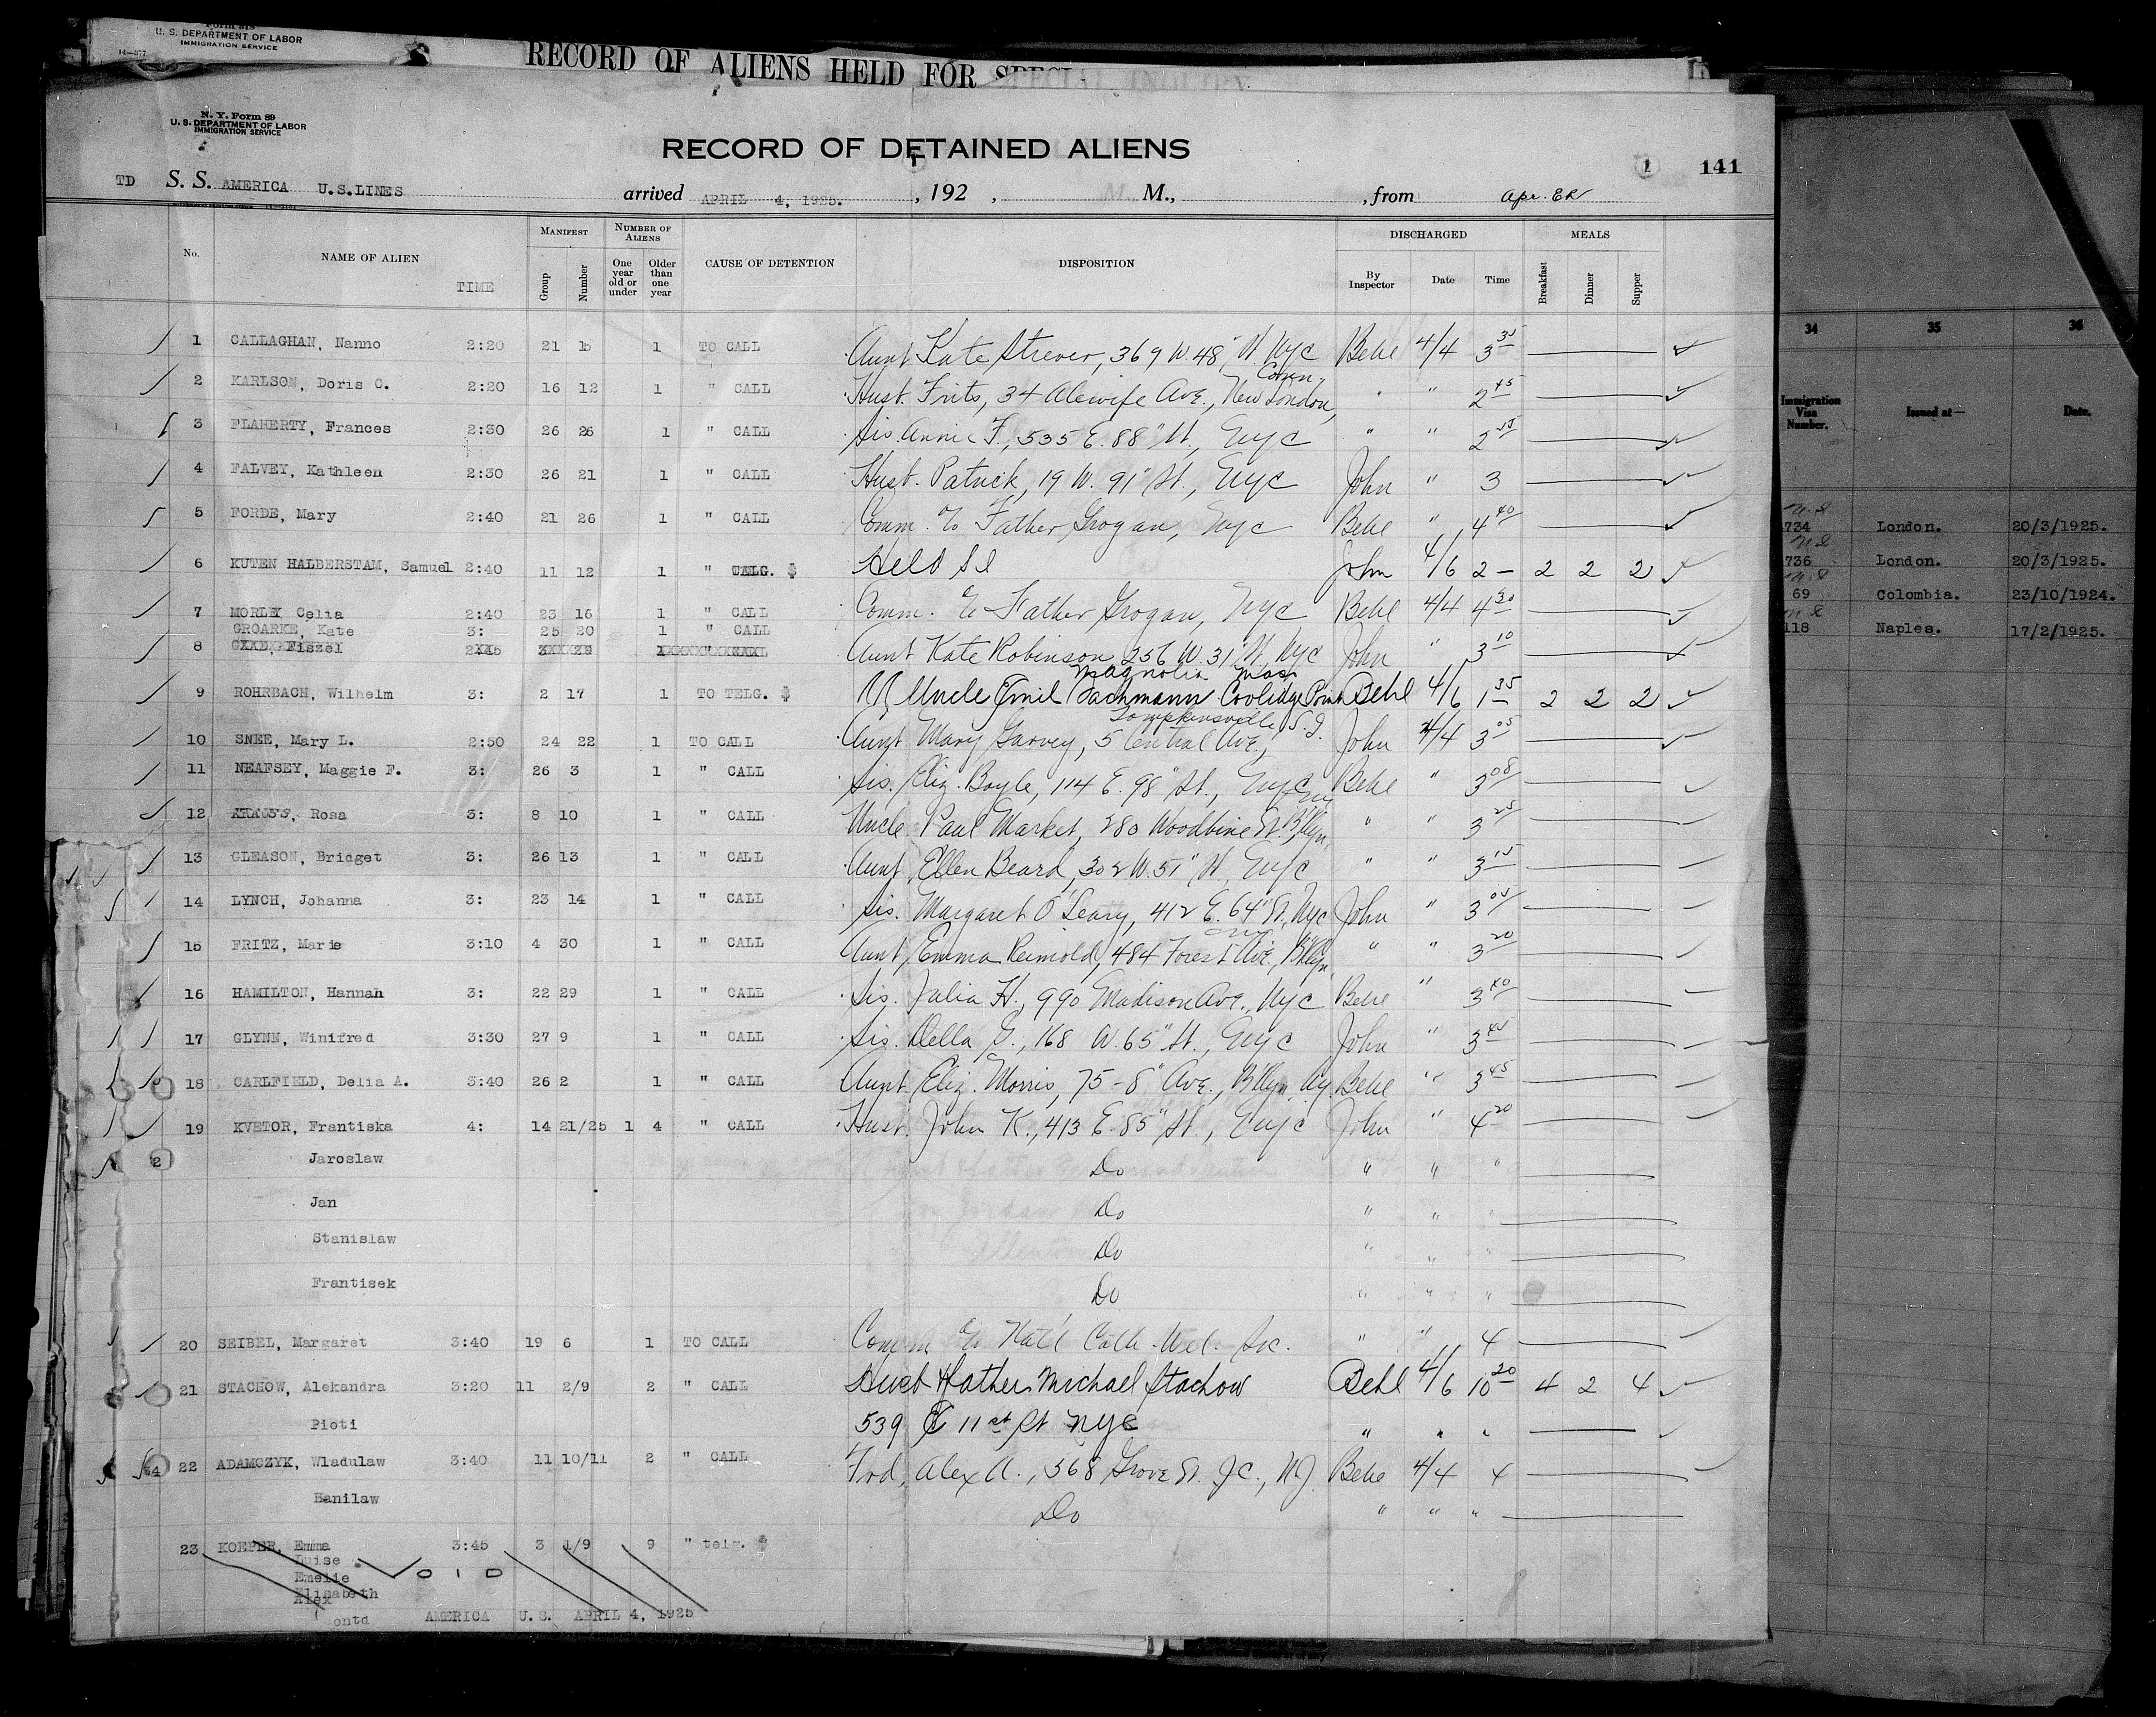 U. S. DEPARTMENT OF LABOR
IMMIGRATION SERVICE
14—577
RECORD OF ALIENS HELD FOR SPECIAL INQUIRY
N. Y. Form 89
U. S. DEPARTMENT OF LABOR
IMMIGRATION SERVICE
RECORD OF DETAINED ALIENS
1 141
TD S. S. AMERICA U.S.LINES arrived APRIL 4, 1925. , 192 , M., , from Apr. ER
No. NAME OF ALIEN TIME MANIFEST Group Number NUMBER OF ALIENS One year old or under Older than one year CAUSE OF DETENTION DISPOSITION DISCHARGED By Inspector Date Time MEALS Breakfast Dinner Supper
1 CALLAGHAN, Nanno 2:20 21 15 1 TO CALL Aunt Kate Strever, 369 W. 48" St. NYC Behl 4/4 3 35
2 KARLSON, Doris C. 2:20 16 12 1 " CALL Hust. Frits, 34 Alewife Ave., New London, Conn. " " 2 45
3 FLAHERTY, Frances 2:30 26 26 1 " CALL Sis. Annie F., 535 E. 88" St, NYC " " 2 55
4 FALVEY, Kathleen 2:30 26 21 1 " CALL Hust. Patrick, 19 W. 91" St., NYC John " 3
5 FORDE, Mary 2:40 21 26 1 " CALL Comm. to Father Grogan, NYC Behl " 4 40
6 KUTEN HALBERSTAM, Samuel 2:40 11 12 1 " TELG. Held SI John 4/6 2 – 2 2 2
7 MORLEY Celia 2:40 23 16 1 " CALL Comm. to Father Grogan, NYC Behl 4/4 4 30
GROARKE, Kate 3: 25 20 1 " CALL
8 Aunt Kate Robinson 256 W. 31" St, NYC John " 3 10
9 ROHRBACH, Wilhelm 3: 2 17 1 TO TELG. Uncle Emil Bachmann Coolidge Point Magnolia Mass Behl 4/6 1 35 2 2 2
10 SNEE, Mary L. 2:50 24 22 1 TO CALL Aunt Mary Garvey, 5 Central Ave., Tompkinsville S.I. John 4/4 3 05
11 NEAFSEY, Maggie F. 3: 26 3 1 " CALL Sis. Eliz. Boyle, 114 E. 98" St., NYC Behl " 3 08
12 KRAUSS, Rosa 3: 8 10 1 " CALL Uncle Paul Market, 280 Woodbine St. B'klyn, NY " " 3 25
13 GLEASON, Bridget 3: 26 13 1 " CALL Aunt Ellen Beard, 302 W. 51" St, NYC " " 3 15
14 LYNCH, Johanna 3: 23 14 1 " CALL Sis. Margaret O'Leary, 412 E. 64" St. NYC John " 3 05
15 FRITZ, Marie 3:10 4 30 1 " CALL Aunt, Emma Reimold, 484 Forest Ave., B'klyn, NY " " 3 20
16 HAMILTON, Hannah 3: 22 29 1 " CALL Sis. Julia H., 990 Madison Ave., NYC Behl " 3 40
17 GLYNN, Winifred 3:30 27 9 1 " CALL Sis. Della G., 168 W. 65" St., NYC John " 3 45
18 CARLFIELD, Delia A. 3:40 26 2 1 " CALL Aunt Eliz. Morris, 75-8" Ave., B'klyn, NY. Behl " 3 45
19 KVETOR, Frantiska 4: 14 21/25 1 4 " CALL Hust. John K., 413 E. 85" St., NYC John " 4 20
2 Jaroslaw Do " " "
Jan Do " " "
Stanislaw Do " " "
Frantisek Do " " "
20 SEIBEL, Margaret 3:40 19 6 1 TO CALL Comm to Nat'l Cath. Wel. Soc. " " 4
21 STACHOW, Alekandra 3:20 11 2/9 2 " CALL Husb & father Michael Stachow Behl 4/6 10 20 4 2 4
Pioti 539 E 11st St NYC " " "
54 22 ADAMCZYK, Wladulaw 3:40 11 10/11 2 " CALL Frd, Alex A., 368 Grove St. J.C., N.J. Behl 4/4 4
Hanilaw Do " " "
23 KOEPER, Emma 3:45 3 1/9 9 " telg.
Luise
Emelie
Elisabeth
Alex
contd AMERICA U. S. APRIL 4, 1925
34 35 36
Immigration Visa Number. Issued at— Date.
734 London. 20/3/1925.
736 London. 20/3/1925.
69 Colombia. 23/10/1924.
118 Naples. 17/2/1925.